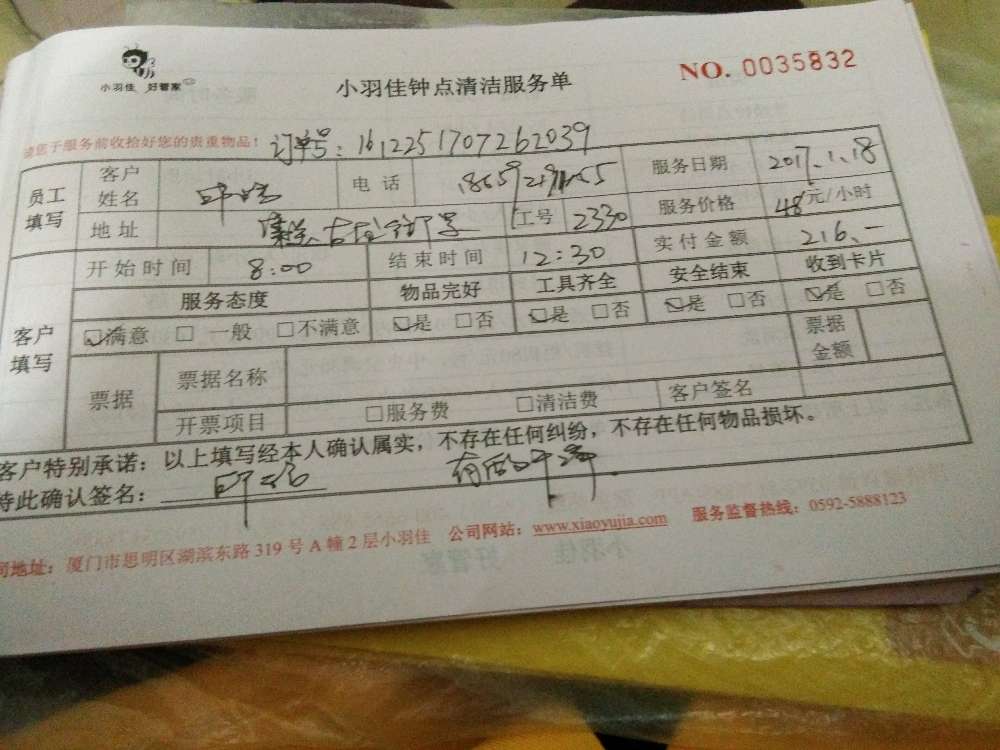 小羽佳 好管家
小羽佳钟点清洁服务单
NO. 0035832
请您于服务前收拾好您的贵重物品!
订单号: 1612251707262039
员工填写 客户姓名 电话 服务日期 2017.1.18
地址 工号 2330 服务价格 48元/小时
客户填写 开始时间 8:00 结束时间 12:30 实付金额 216.-
服务态度 物品完好 工具齐全 安全结束 收到卡片
☑满意 □一般 □不满意 ☑是 □否 ☑是 □否 ☑是 □否 ☑是 □否
票据 票据名称 票据金额
开票项目 □服务费 □清洁费 客户签名
客户特别承诺:以上填写经本人确认属实,不存在任何纠纷,不存在任何物品损坏。
特此确认签名:
公司地址:厦门市思明区湖滨东路319号A幢2层小羽佳 公司网站:www.xiaoyujia.com 服务监督热线:0592-5888123